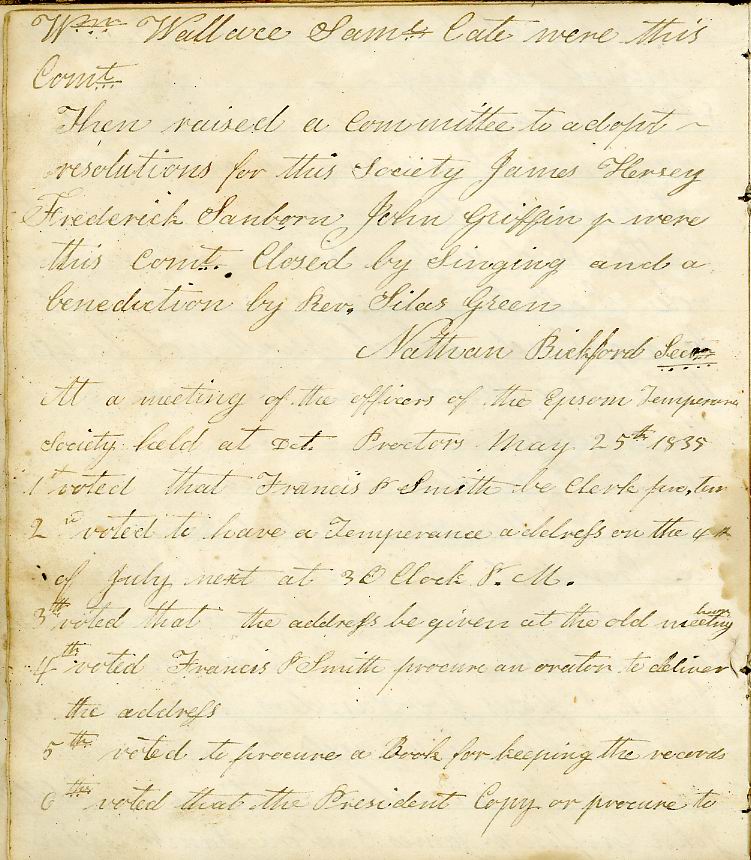 Wm Wallace Saml Cate were this
Comt
Then raised a Committee to adopt
resolutions for this Society James Hersey
Frederick Sanborn John Griffin jr were
this Comt. Closed by Singing and a
benediction by Rev. Silas Green
Nathan Bickford Secr
At a meeting of the officers of the Epsom Temperance
Society held at Proctors May 25th 1835
1st voted that Francis P Smith be Clerk pro, tem
2nd voted to have a Temperance address on the 4th
of July next at 3 O Clock P. M.
3th voted that the address be given at the old meeting house
4th voted Francis P Smith procure an orator to deliver
the address
5th voted to procure a Book for keeping the records
6th voted that the President Copy or procure to